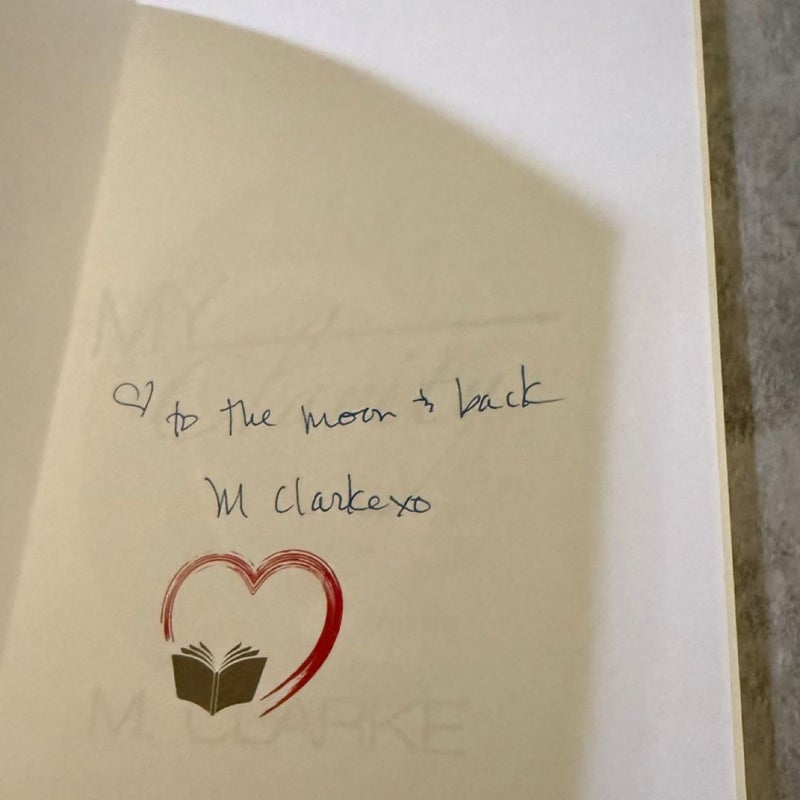 MY
♡ to the moon & back
M Clarke xo
M. CLARKE